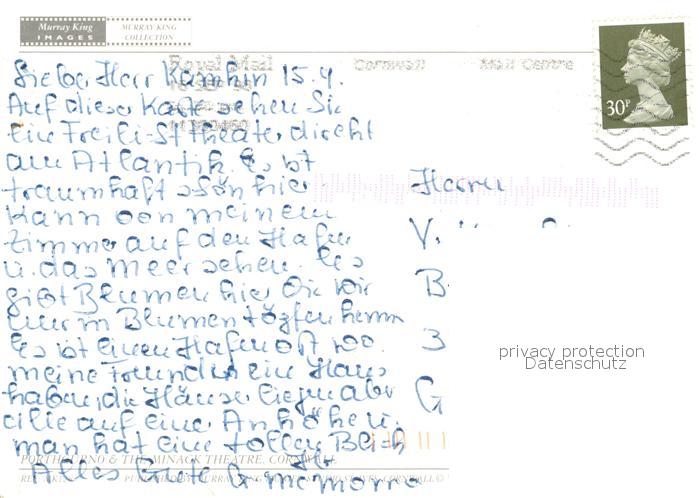 Murray King
IMAGES
MURRAY KING
COLLECTION
Royal Mail
Cornwall
Mail Centre
30P
Lieber Herr 15.9.
Auf dieser Karte sehen Sie
ein Freili-Sttheater direkt
am Atlantik. Es ist
traumhaft schön hier
kann von meinem
Zimmer auf den Hafen
u. das Meer sehen. Es
gibt Blumen hier die wir
nur in Blumentöpfen kenn
Es ist einen Hafenort wo
meine Freundin ein Haus
haben, die Häuser liegen aber
alle auf einer Anhöhe u.
man hat eine tollen Blick
Alles Gute
Herrn
V.
B
3
G
privacy protection
Datenschutz
PORTHCURNO & THE MINACK THEATRE, CORNWALL